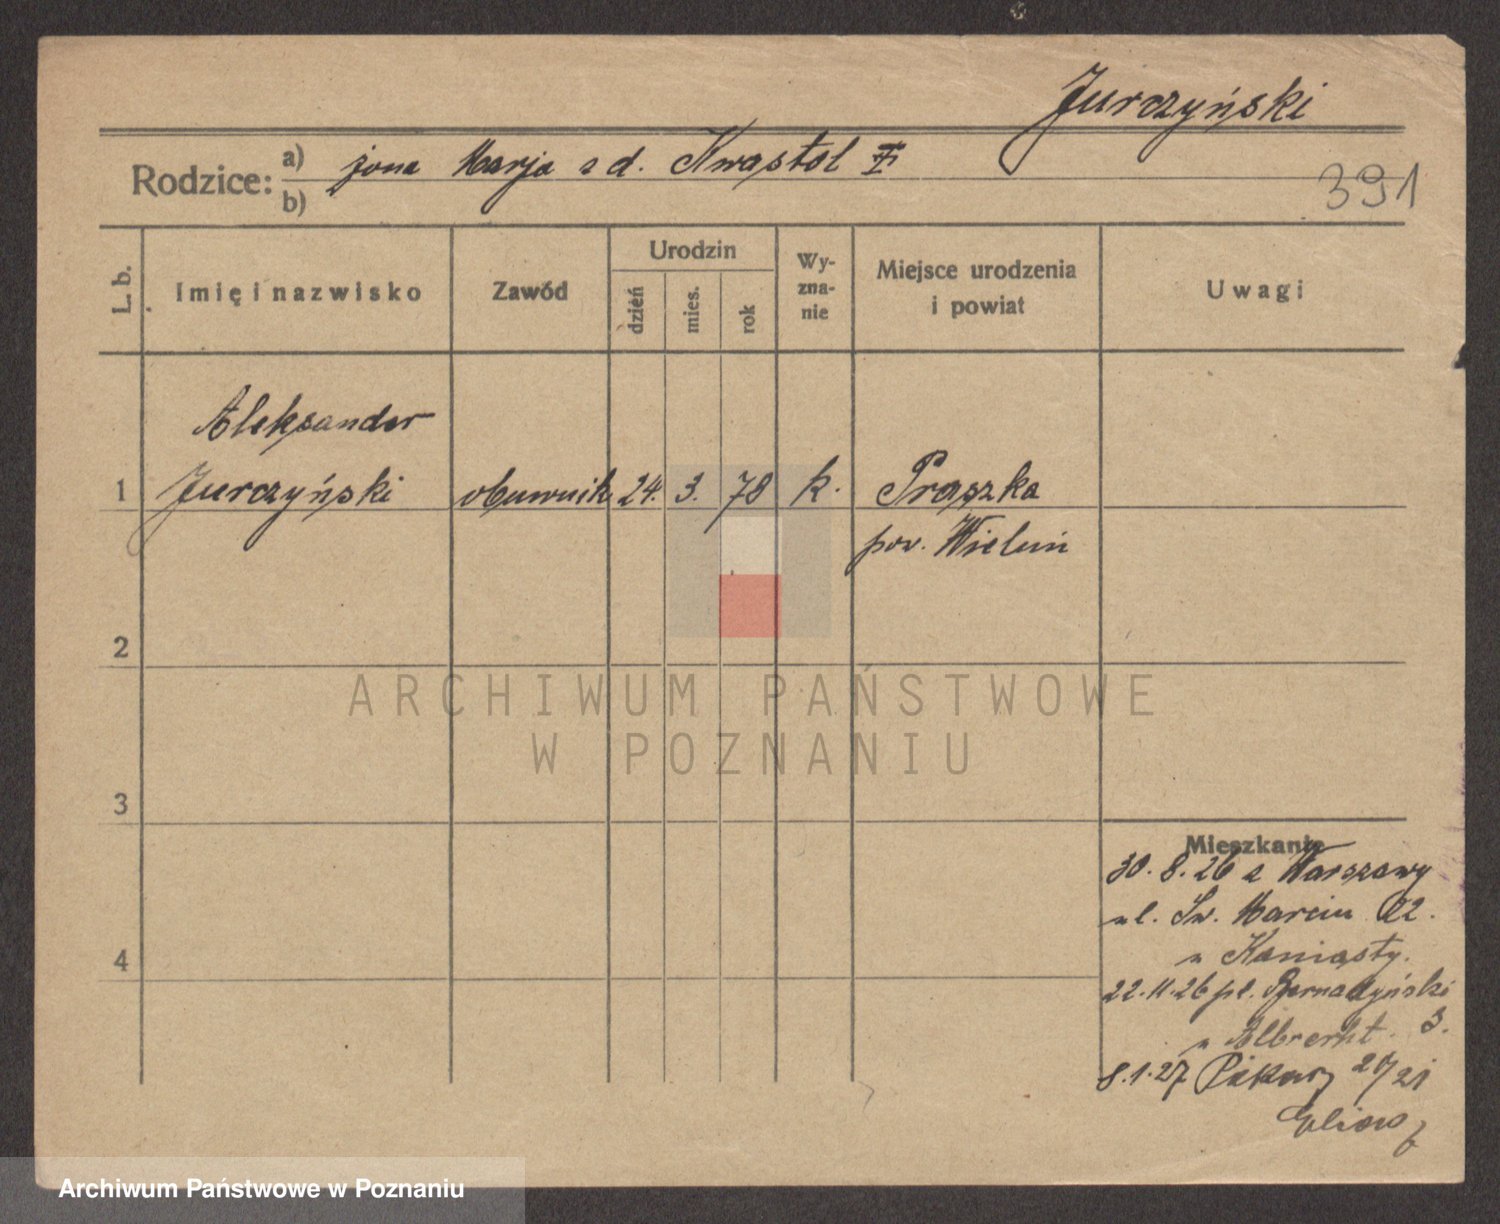 Jurczyński
Rodzice: a) żona Marja z d. Kwaśtol
b)
391
L. b.
Imię i nazwisko
Zawód
Urodzin
dzień
mies.
rok
Wy-
zna-
nie
Miejsce urodzenia
i powiat
Uwagi
Aleksander
1 Jurczyński obuwnik 24. 3. 78 k. Praszka
pow. Wieluń
2
ARCHIWUM PAŃSTWOWE
W POZNANIU
3
Mieszkanie
30. 8. 26 z Warszawy
ul. Św. Marcin 22.
u Kaniasty.
4
22.11.26 pl. Bernadyński
u Albrecht. 3.
8.1.27 Piekary 20/21
Archiwum Państwowe w Poznaniu